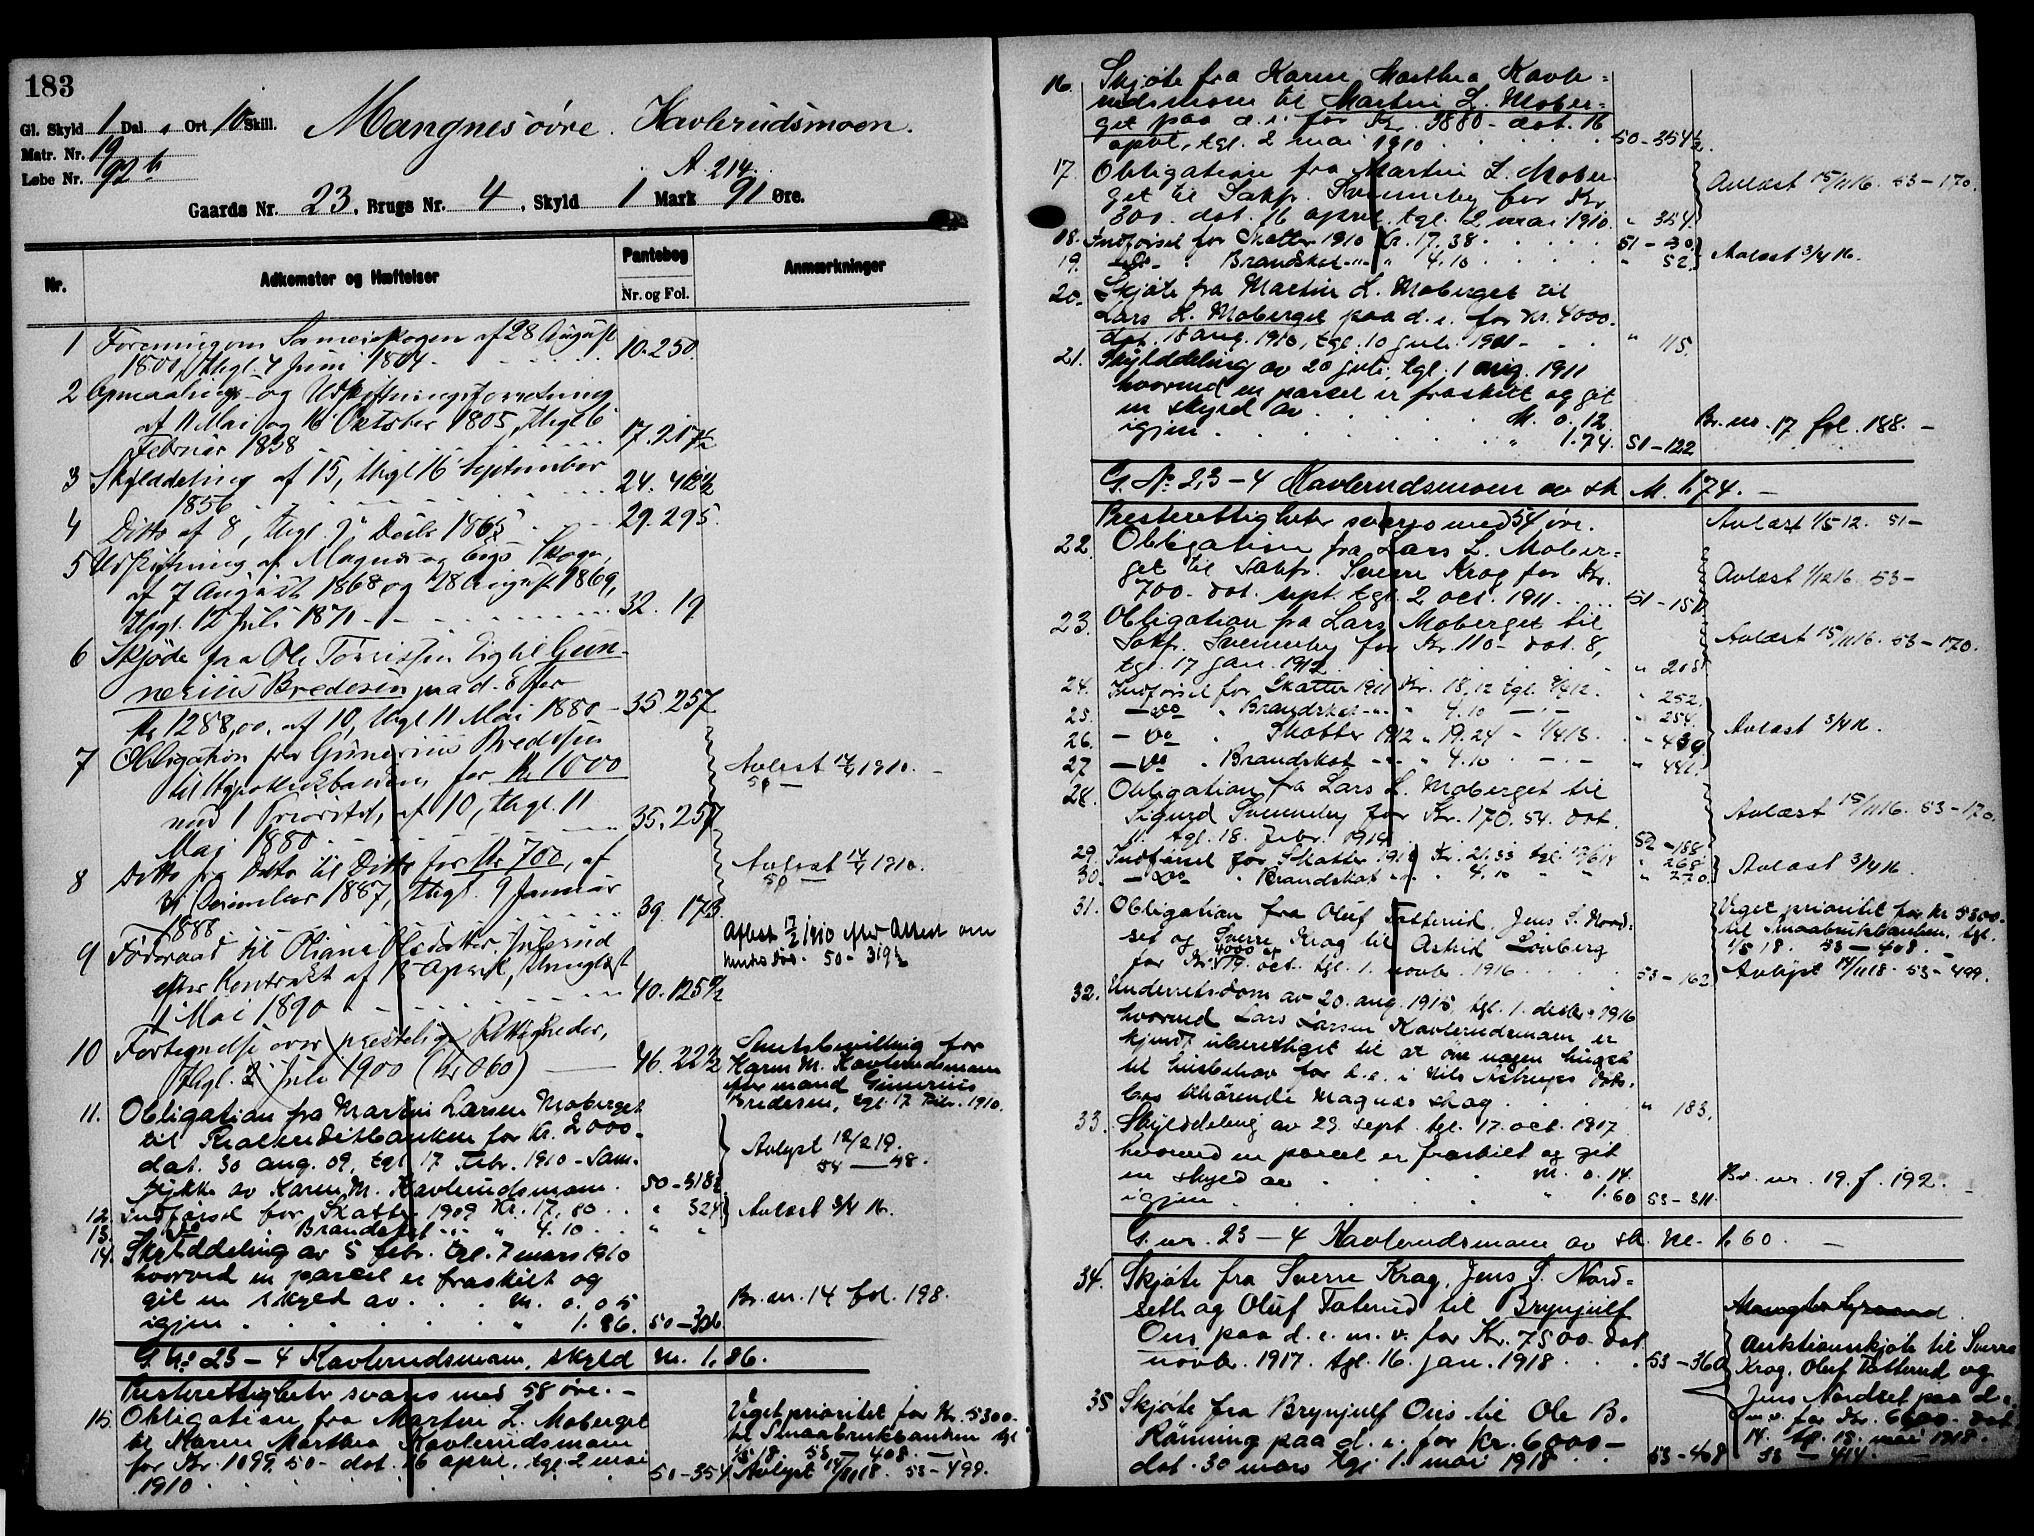 183
Gl. Skyld 1 Dal. " Ort 10 Skill. Mangnes øvre. Kavlerudsmoen.
Matr. Nr. 19
Løbe Nr. 92 b A 214.
Gaards Nr. 23, Brugs Nr. 4, Skyld 1 Mark 91 Øre.
Nr. Adkomster og Hæftelser Pantebog Anmærkninger
Nr. og Fol.
1 Forening om Sameieskogen af 28 August
1801, thgl. 4 Juni 1804 10.250
2 Opmaalings- og Udskiftningsforretning
af 11 Mai og 16 Oktober 1805, thgl 6
Februar 1838 17.217½
3 Skylddeling af 15, thgl 16 September
1856 24.412½
4 Ditto af 8, thgl. 9 Decbr 1865 29.295.
5 Udskiftning af Magnæs og Skoge,
af 7 August 1868 og 28 August 1869,
thgl. 12 Juli 1870 32.19
6 Skjøde fra Ole Tørrissen til Gun-
nerius Bredesen paa d. E. for
Kr 1288,00, af 10, thgl 11 Mai 1880 35.257
7 Obligation fra Gunerius Bredesen
til Hypothekbanken for Kr 1000
med 1 Prioritet, af 10, thgl. 11
Maj 1880 35.257
Avlæst 1910.
50 —
8 Ditto fra Ditto til Ditto for Kr 700, af
31 December 1887, thgl. 9 Januar
1888 39.173.
Avlæst 1910.
50 —
9 Føderaad til Oliane Olsdatter Julsrud
efter Kontrakt af 15 April, thinglæst
1 Mai 1890 40.125½
Aflæst 17/2 1910 efter Attest om
hendes død. 50-319½
10 Fortegnelse over præstelige Rettigheder,
thgl. 2 Juli 1900 (Kr 0.60) 46.22½
Skiftebevilling for
Karen M. Kavlerudsmoen
efter mand Gunerius
Bredesen, tgl. 17. Febr. 1910.
11. Obligation fra Martin Larsen Moberget
til Realkreditbanken for Kr. 2000-
dat. 30 aug. 09, tgl. 17 Febr. 1910 - Sam-
tykke av Karen M. Kavlerudsmoen. 50-318½
Avlyst 12/2 19.
54 — 48.
12. Indførsel for Skatter 1909 Kr. 17.80 " 324 Avlæst 3/4 16.
13. - Do - Brandskat - " - " 4.10 " "
14. Skylddeling av 5 febr. tgl. 7 mars 1910
hvorved en parcel er fraskilt og
git en skyld av M. 0.05 Br. nr. 14 fol. 198.
igjen " 1.86. 50-326
G. No. 23 - 4 Kavlerudsmoen, skyld M. 1.86.
Presterettigheter svares med 58 øre. -
15 Obligation fra Martin L. Moberget
til Karen Marthea Kavlerudsmoen
for Kr. 1099.50 - dat. 16 april, tgl. 2 mai
1910 50-354
Veget prioritet for Kr. 5300-
til Smaabrukbanken tgl.
1/5 18. 53 - 408. -
Avlyst 15/11 18. 53-499.
16. Skjøte fra Karen Marthea Kavle-
rudsmoen til Martin L. Mober-
get paa d. e. for Kr. 3880 - dat. 16
april, tgl. 2 mai 1910 50-354½.
17. Obligation fra Martin L. Mober-
get til Sakf. Svenneby for Kr.
300. dat. 16 april, tgl. 2 mai 1910. " 354.
Avlæst 15/11 16. 53-170.
18. Indførsel for Skatter 1910 Kr. 17.38 51-30
19. - Do - " Brandskat - " - " 4.10 " 52.
Avlæst 3/4 16.
20. Skjøte fra Martin L. Moberget til
Lars L. Moberget paa d. e. for Kr. 4000.
dat. 18 aug. 1910, tgl. 10 juli 1911 - " 115.
21. Skylddeling av 20 juli, tgl. 1 aug. 1911
hvorved en parcel er fraskilt og git
en skyld av M. 0.12. Br. nr. 17 fol. 188. -
igjen " 1.74. 51-122
G. No 23-4 Kavlerudsmoen av sk. M. 1.74. -
Presterettigheter svares med 54 øre. Avlæst 1/5 12. 51-
22. Obligation fra Lars L. Mober-
get til Sakf. Sverre Krog for Kr.
700. dat. sept. tgl. 2 oct. 1911. 51-151
Avlæst 1/12 16. 53-
23. Obligation fra Lars Moberget til
Sakf. Svenneby for Kr. 110- dat. 8,
tgl. 17 jan. 1912. " 208
Avlæst 15/11 16. 53-170.
24. Indførsel for Skatter 1911 Kr. 18.12 tgl. 12. " 252.
25. - Do - " Brandskat - " - " 4.10 - " - " 254.
26. - Do - " Skatter 1912 " 19.24 - 1/4 13. " 439
27 - Do - " Brandskat - " - " 4.10 - " - " 441.
Avlæst 3/4 16.
28. Obligation fra Lars L. Moberget til
Sigurd Svenneby for Kr. 170.54. dat.
11. tgl. 18. febr. 1914 52-188
Avlæst 15/11 16. 53-170.
29. Indførsel for Skatter 1913 Kr. 21.33 tgl. " 268
30. - Do - " Brandskat - " - " 4.10 " " " 270.
Avlæst 3/4 16.
31. Obligation fra Oluf Tatterud, Jens S. Nord-
set og Sverre Krog til Astrid Løvberg
for Kr. 4000 av 19. oct. tgl. 1. novbr. 1916 53-162
Veget prioritet for Kr 5300-
til Smaabrukbanken, tgl.
1/5 18. 53-408. -
Avlyst 15/11 18. 53-499.
32. Underretsdom av 20. aug. 1915, tgl. 1. decbr. 1916
hvorved Lars Larsen Kavlerudsmoen er
kjendt uberettiget til at øve nogen hugst
til husbehov for d. e. i Nils Astrups døds-
bos tilhørende Magnæs skog " 183.
33. Skylddeling av 29. sept. tgl. 17. oct. 1917
hvorved en parcel er fraskilt og git
en skyld av M. 0.14. Br. nr. 19. f. 192. -
igjen " 1.60 53-311.
G. nr. 23 - 4 Kavlerudsmoen av sk. M. 1.60. -
34. Skjøte fra Sverre Krog, Jens S. Nord-
seth og Oluf Taterud til Brynjulf
Ous paa d. e. m. v. for Kr. 7500. dat.
novbr. 1917. tgl. 16. jan. 1918 53-360
Auktionsskjøte til Sverre
Krog, Oluf Tatterud og
Jens Nordset paa d. e.
m. v. for Kr. 6600. dat.
14. tgl. 15. mai 1918.
53 - 414.
35 Skjøte fra Brynjulf Ous til Ole B.
Rønning paa d. e. for Kr. 6000-
dat. 30 mars tgl. 1. mai 1918 53-408